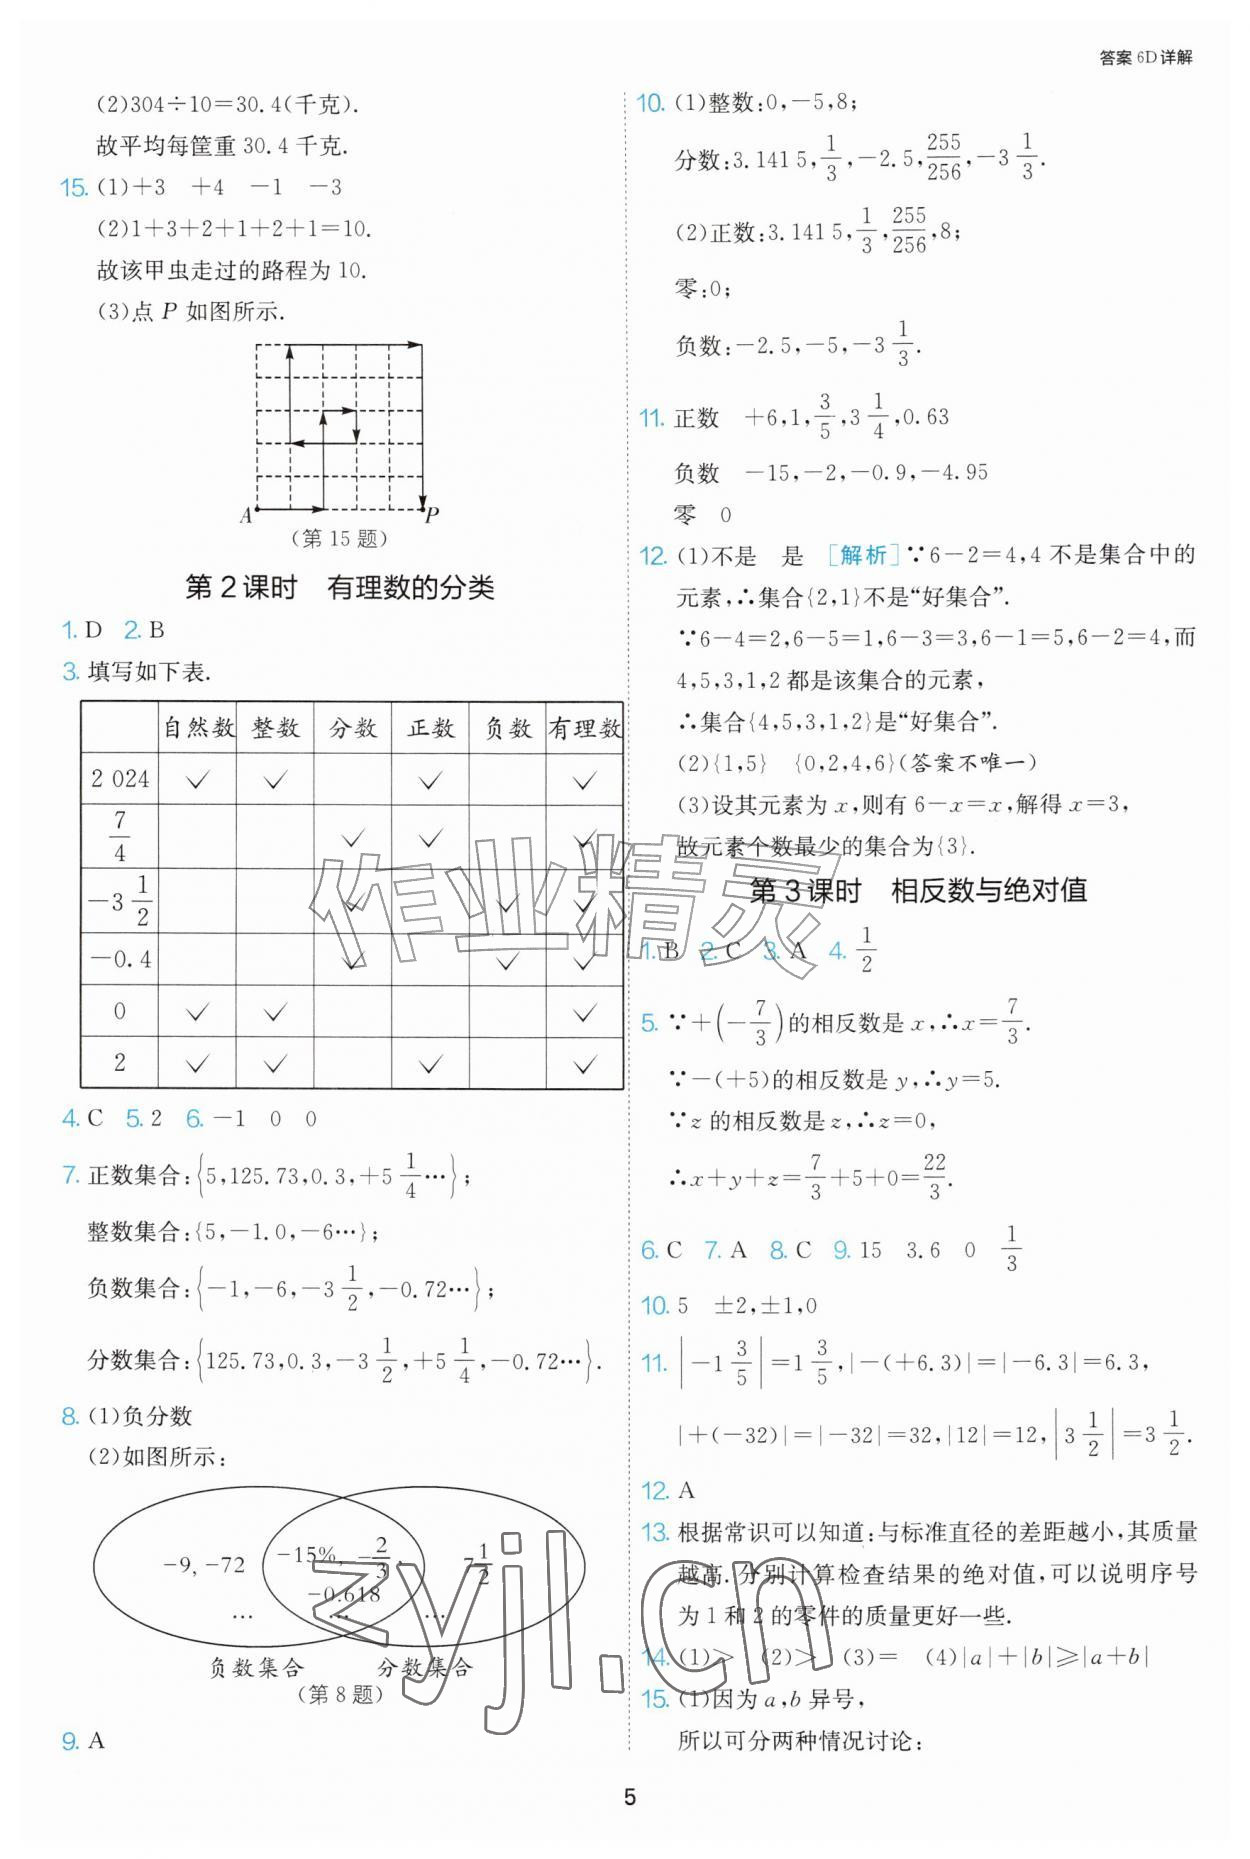 答案 6D详解
(2)304÷10=30.4(千克).
故平均每筐重 30.4 千克.
15. (1)+3 +4 -1 -3
(2)1+3+2+1+2+1=10.
故该甲虫走过的路程为 10.
(3)点 P 如图所示.
A P
(第 15 题)
第 2 课时 有理数的分类
1. D 2. B
3. 填写如下表.
自然数 整数 分数 正数 负数 有理数
2 024 ✓ ✓ ✓ ✓
7/4 ✓ ✓ ✓
-3 1/2 ✓ ✓ ✓
-0.4 ✓ ✓ ✓
0 ✓ ✓ ✓
2 ✓ ✓ ✓ ✓
4. C 5. 2 6. -1 0 0
7. 正数集合:{5,125.73,0.3,+5 1/4…};
整数集合:{5,-1.0,-6…};
负数集合:{-1,-6,-3 1/2,-0.72…};
分数集合:{125.73,0.3,-3 1/2,+5 1/4,-0.72…}.
8. (1)负分数
(2)如图所示:
-9, -72 -15%, -2/3, 7 1/2
-0.618
… … …
负数集合 分数集合
(第 8 题)
9. A
10. (1)整数:0,-5,8;
分数:3.141 5,1/3,-2.5,255/256,-3 1/3.
(2)正数:3.141 5,1/3,255/256,8;
零:0;
负数:-2.5,-5,-3 1/3.
11. 正数 +6,1,3/5,3 1/4,0.63
负数 -15,-2,-0.9,-4.95
零 0
12. (1)不是 是 [解析]∵6-2=4,4 不是集合中的
元素,∴集合{2,1}不是“好集合”.
∵6-4=2,6-5=1,6-3=3,6-1=5,6-2=4,而
4,5,3,1,2 都是该集合的元素,
∴集合{4,5,3,1,2}是“好集合”.
(2){1,5} {0,2,4,6}(答案不唯一)
(3)设其元素为 x,则有 6-x=x,解得 x=3,
故元素个数最少的集合为{3}.
第 3 课时 相反数与绝对值
1. B 2. C 3. A 4. 1/2
5. ∵+(-7/3)的相反数是 x,∴x=7/3.
∵-(+5)的相反数是 y,∴y=5.
∵z 的相反数是 z,∴z=0,
∴x+y+z=7/3+5+0=22/3.
6. C 7. A 8. C 9. 15 3.6 0 1/3
10. 5 ±2,±1,0
11. |-1 3/5|=1 3/5,|-(+6.3)|=|-6.3|=6.3,
|+(-32)|=|-32|=32,|12|=12,|3 1/2|=3 1/2.
12. A
13. 根据常识可以知道:与标准直径的差距越小,其质量
越高.分别计算检查结果的绝对值,可以说明序号
为 1 和 2 的零件的质量更好一些.
14. (1)> (2)> (3)= (4)|a|+|b|≥|a+b|
15. (1)因为 a,b 异号,
所以可分两种情况讨论:
5
作业精灵
zyjl.cn